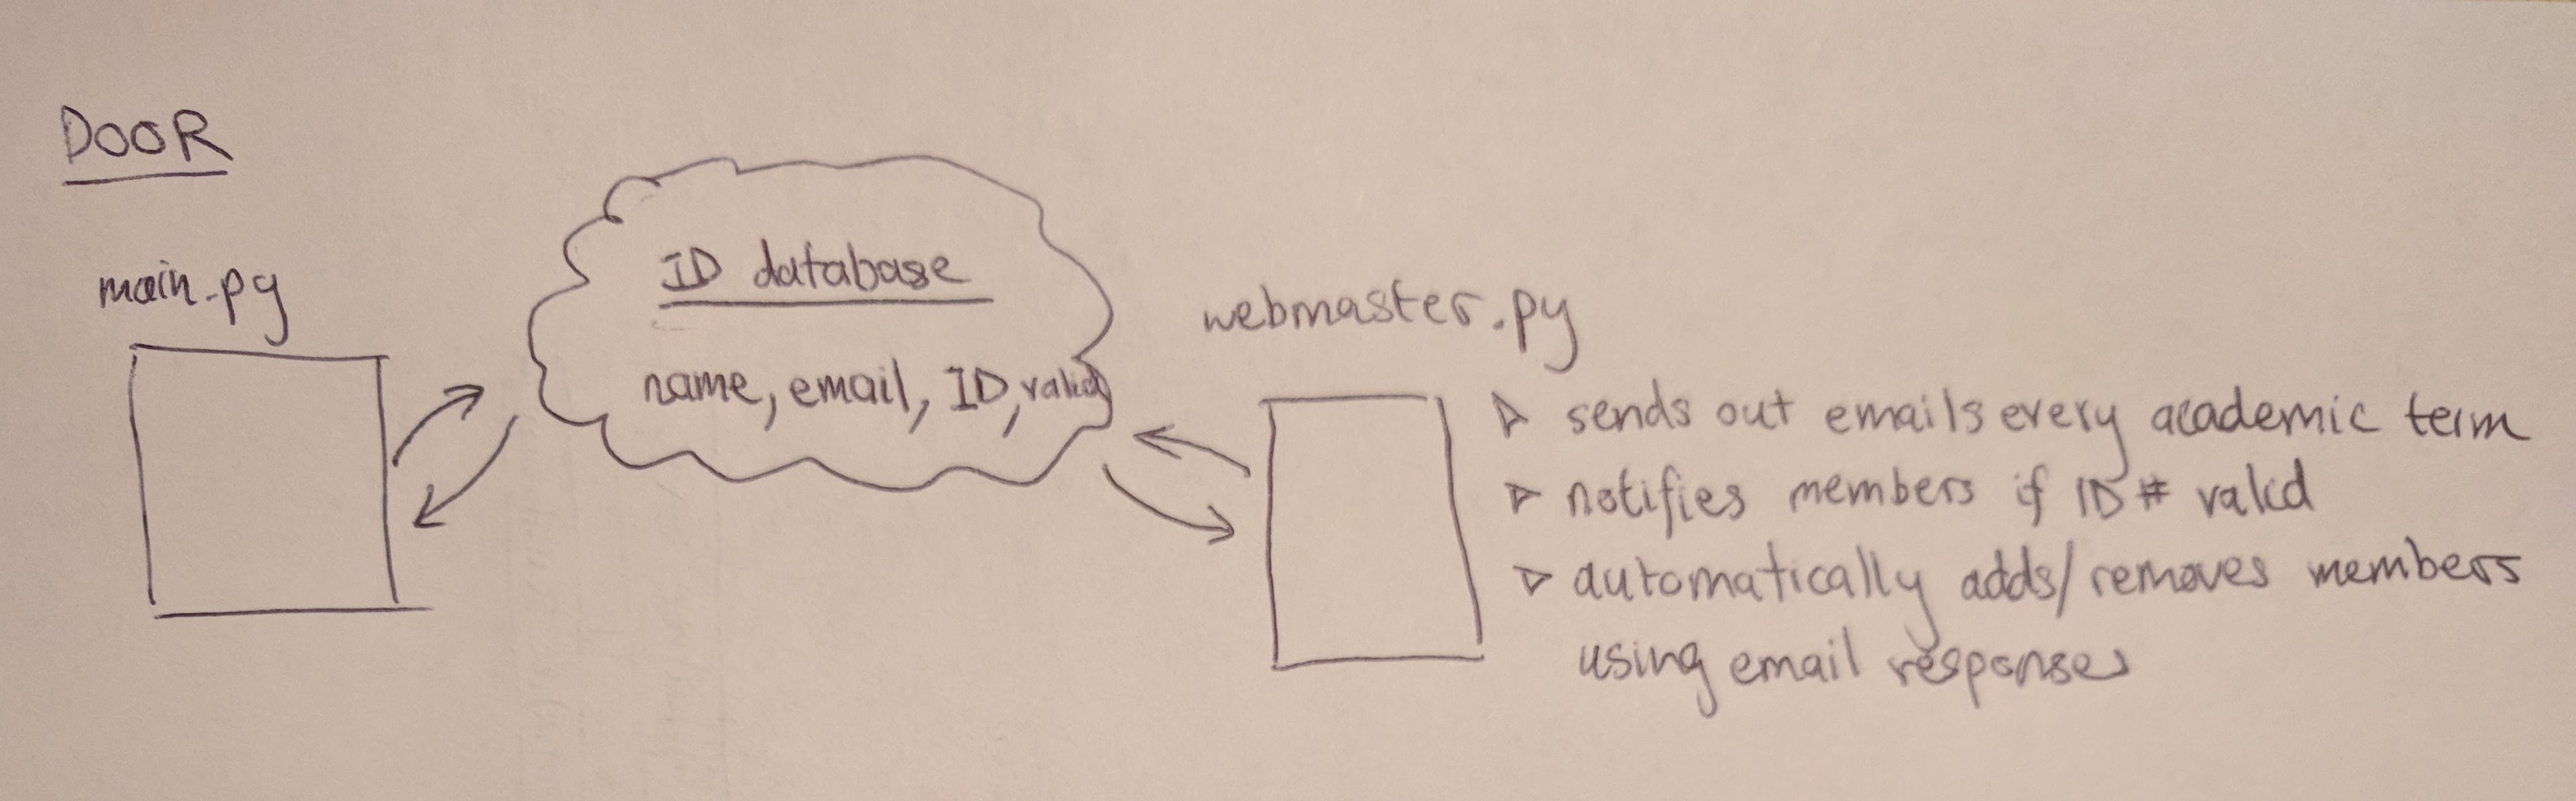 DOOR
main.py
ID database
name, email, ID, valid
webmaster.py
▷ sends out emails every academic term
▷ notifies members if ID # valid
▷ automatically adds/removes members
using email responses